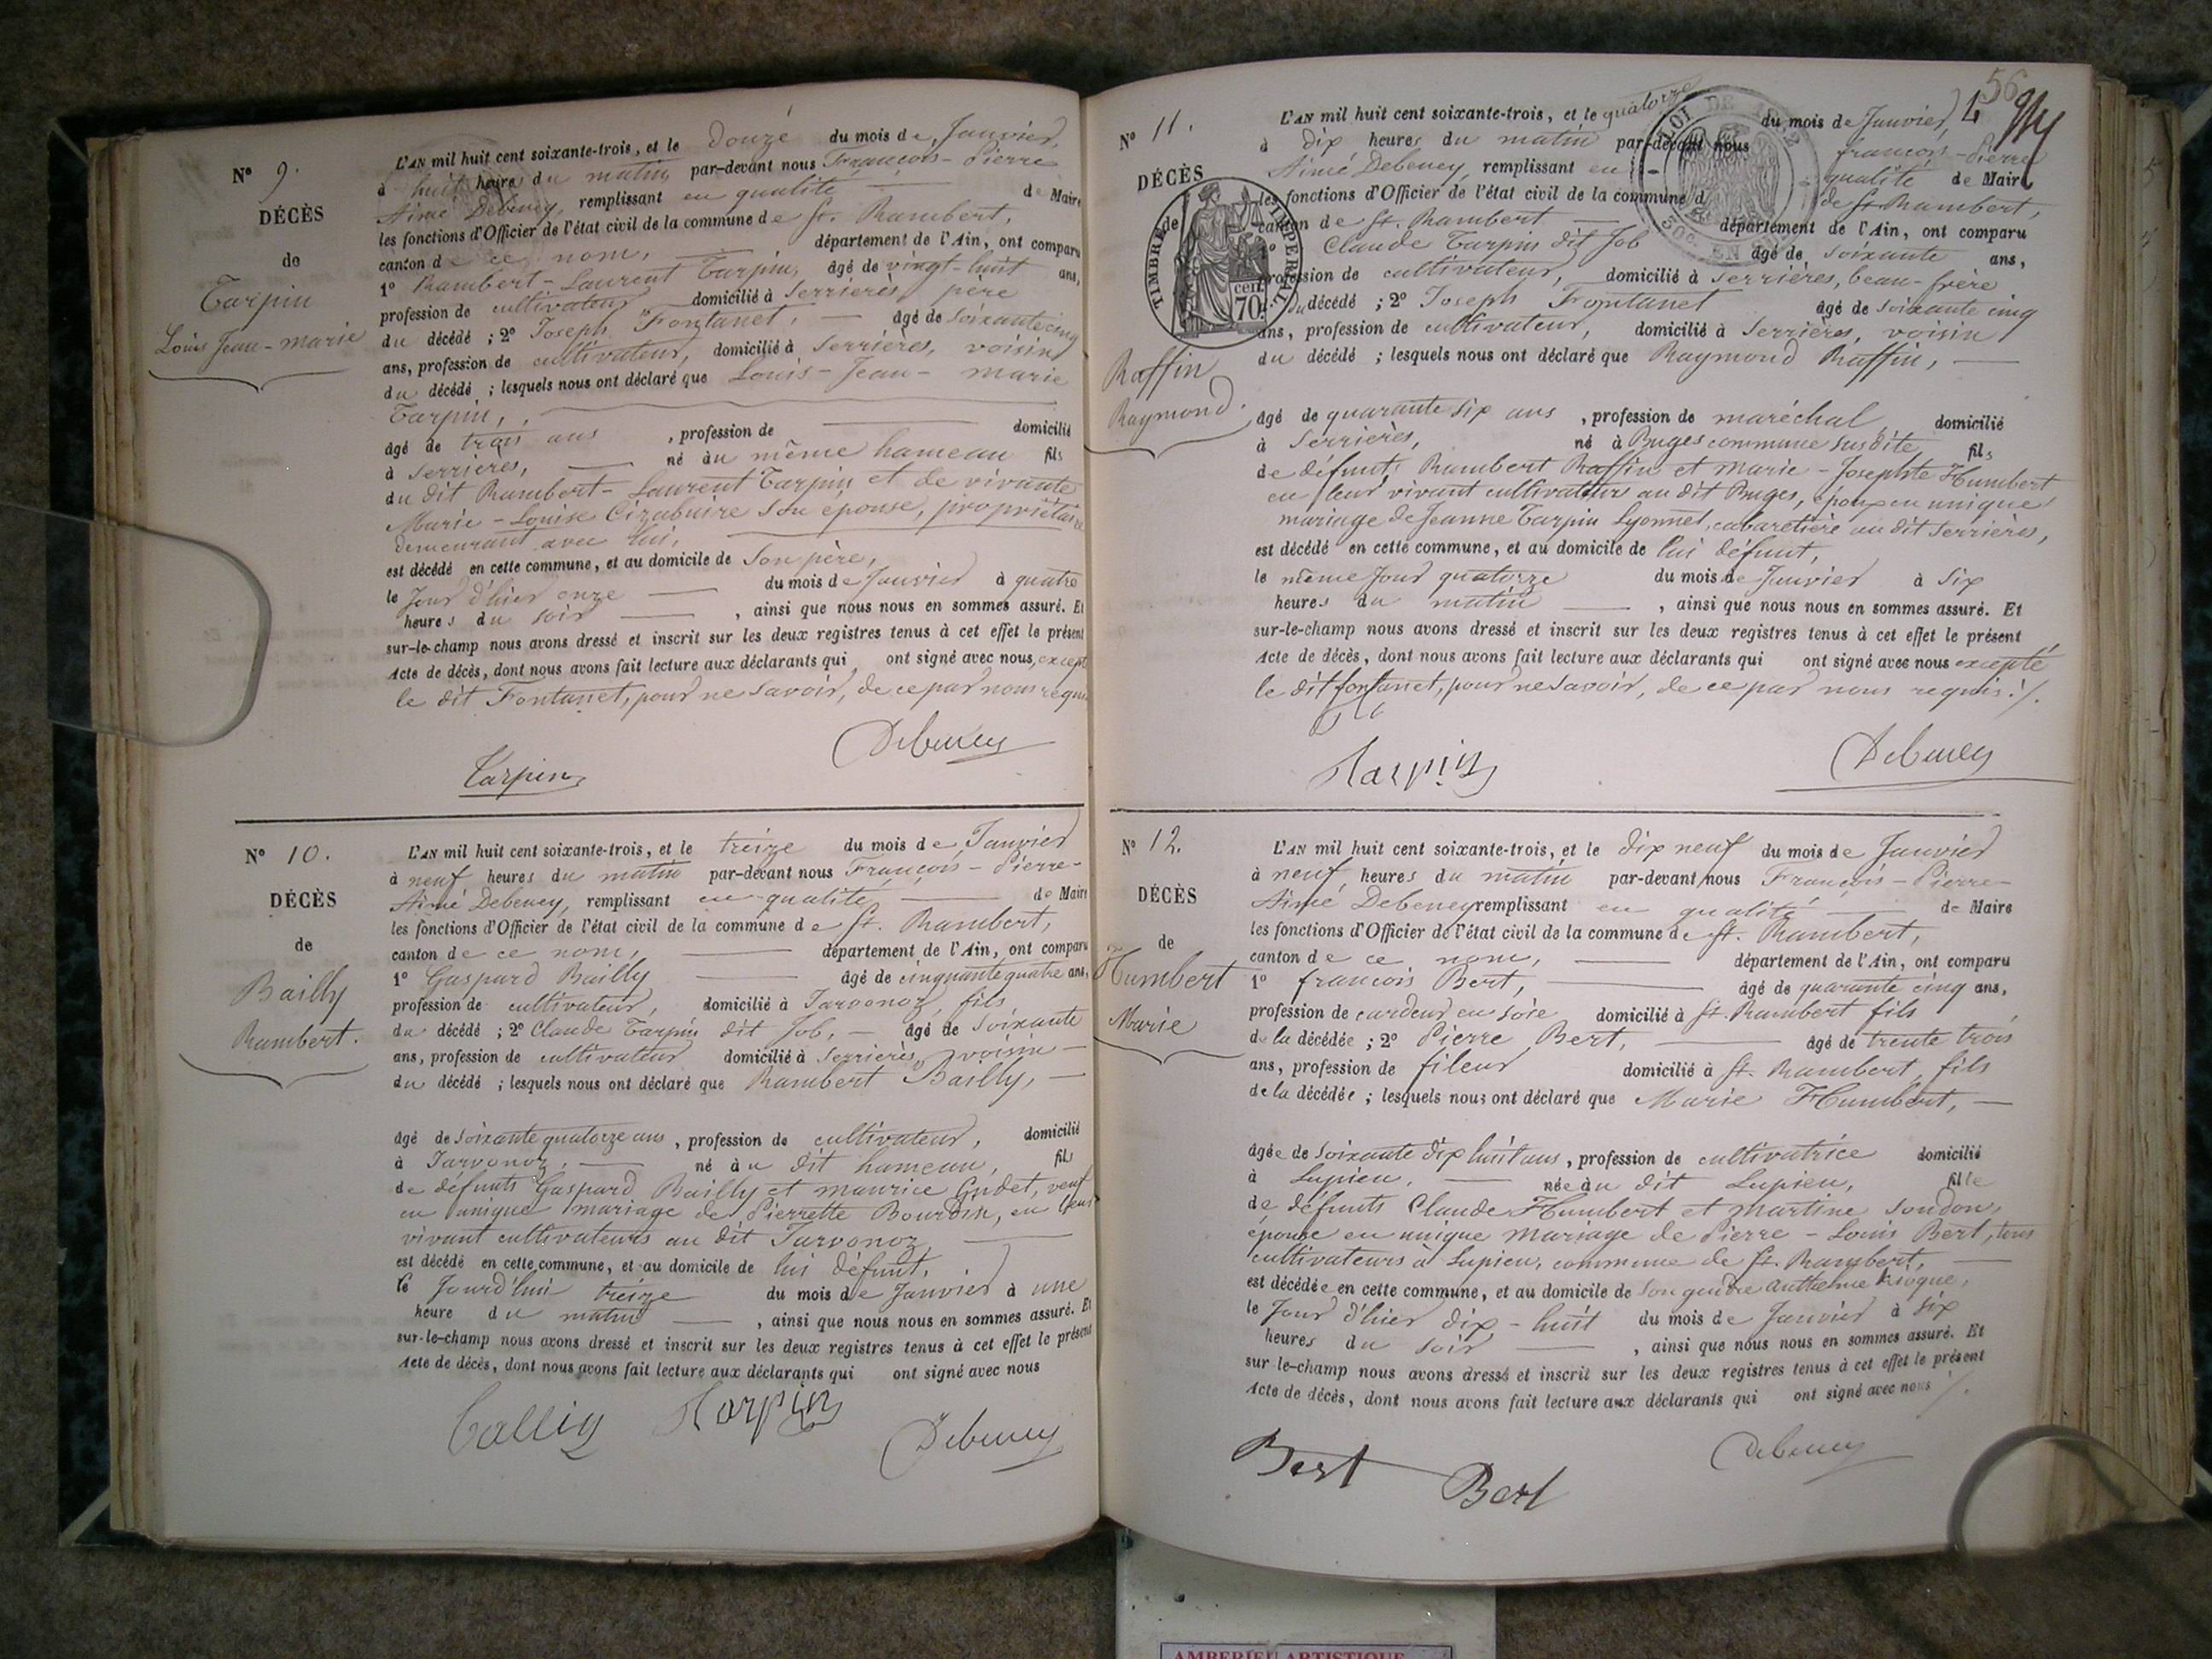 N° 9.
DÉCÈS
de
Tarpin
Louis Jean-marie
L'AN mil huit cent soixante-trois, et le douze du mois de Janvier,
à huit heure du matin par-devant nous François-Pierre
Aimé Debeney, remplissant en qualité de Maire
les fonctions d'Officier de l'état civil de la commune de St. Rambert,
canton de ce nom, département de l'Ain, ont comparu
1° Rambert-Laurent Tarpin, âgé de vingt-huit ans,
profession de cultivateur domicilié à Serrières, père
du décédé ; 2° Joseph Fontanet, âgé de soixante cinq
ans, profession de cultivateur, domicilié à Serrières, voisin
du décédé ; lesquels nous ont déclaré que Louis-Jean-marie
Tarpin,
âgé de trois ans , profession de domicilié
à Serrières, né au même hameau fils
du dit Rambert-Laurent Tarpin et de vivante
Marie-Louise son épouse, propriétaire
demeurant avec lui,
est décédé en cette commune, et au domicile de son père,
le Jour d'hier onze du mois de Janvier à quatre
heures du soir , ainsi que nous nous en sommes assuré. Et
sur-le-champ nous avons dressé et inscrit sur les deux registres tenus à cet effet le présent
Acte de décès, dont nous avons fait lecture aux déclarants qui ont signé avec nous, excepté
le dit Fontanet, pour ne savoir, de ce par nous requis
Tarpin Debeney
N° 10.
DÉCÈS
de
Bailly
Rambert.
L'AN mil huit cent soixante-trois, et le treize du mois de Janvier
à neuf heures du matin par-devant nous François-Pierre-
Aimé Debeney, remplissant en qualité de Maire
les fonctions d'Officier de l'état civil de la commune de St. Rambert,
canton de ce nom, département de l'Ain, ont comparu
1° Gaspard Bailly âgé de cinquante quatre ans,
profession de cultivateur, domicilié à Javonoz, fils
du décédé ; 2° Claude Tarpin dit Job, âgé de soixante
ans, profession de cultivateur domicilié à Serrières, voisin
du décédé ; lesquels nous ont déclaré que Rambert Bailly,
âgé de soixante quatorze ans , profession de cultivateur, domicilié
à né au dit hameau, fils
de défunts Gaspard Bailly et maurice veuf
en unique mariage de Pierrette en leur
vivant cultivateurs au dit
est décédé en cette commune, et au domicile de lui défunt,
le Jourd'hui treize du mois de Janvier à une
heure du matin , ainsi que nous nous en sommes assuré. Et
sur-le-champ nous avons dressé et inscrit sur les deux registres tenus à cet effet le présent
Acte de décès, dont nous avons fait lecture aux déclarants qui ont signé avec nous
Tarpin Debeney
56
4
N° 11.
DÉCÈS
de
TIMBRE IMPERIAL
70 cent
LOI DE
50c. EN
Raffin
Raymond.
L'AN mil huit cent soixante-trois, et le quatorze du mois de Janvier,
à dix heures du matin par-devant nous françois-Pierre
Aimé Debeney, remplissant en qualité de Maire
les fonctions d'Officier de l'état civil de la commune de St. Rambert,
canton de St. Rambert département de l'Ain, ont comparu
1° Claude Tarpin dit Job âgé de soixante ans,
profession de cultivateur, domicilié à Serrières, beau-frère
du décédé ; 2° Joseph Fontanet âgé de soixante cinq
ans, profession de cultivateur, domicilié à Serrières, voisin
du décédé ; lesquels nous ont déclaré que Raymond Raffin,
âgé de quarante six ans , profession de maréchal, domicilié
à Serrières, né à Buges commune susdite fils
de défunts Rambert Raffin et Marie-Josephte Humbert
en leur vivant cultivateurs au dit Buges, époux en unique
mariage de Jeanne Tarpin Lyonnet, cabaretière au dit Serrières,
est décédé en cette commune, et au domicile de lui défunt,
le même Jour quatorze du mois de Janvier à Six
heures du matin , ainsi que nous nous en sommes assuré. Et
sur-le-champ nous avons dressé et inscrit sur les deux registres tenus à cet effet le présent
Acte de décès, dont nous avons fait lecture aux déclarants qui ont signé avec nous excepté
le dit fontanet, pour ne savoir, de ce par nous requis ./.
Tarpin Debeney
N° 12.
DÉCÈS
de
Humbert
Marie
L'AN mil huit cent soixante-trois, et le dix neuf du mois de Janvier
à neuf heures du matin par-devant nous François-Pierre-
Aimé Debeney remplissant en qualité de Maire
les fonctions d'Officier de l'état civil de la commune de St. Rambert,
canton de ce nom, département de l'Ain, ont comparu
1° françois Bert, âgé de quarante cinq ans,
profession de cardeur en soie domicilié à St. Rambert fils
de la décédée ; 2° Pierre Bert, âgé de trente trois
ans, profession de fileur domicilié à St. Rambert, fils
de la décédée ; lesquels nous ont déclaré que Marie Humbert,
âgée de soixante dix huit ans , profession de cultivatrice domicilié
à Lupieu, née au dit Lupieu, fille
de défunts Claude Humbert et martine
épouse en unique mariage de Pierre-Louis Bert, tous
cultivateurs à Lupieu, commune de St. Rambert,
est décédée en cette commune, et au domicile de son gendre
le Jour d'hier dix-huit du mois de Janvier à six
heures du soir , ainsi que nous nous en sommes assuré. Et
sur-le-champ nous avons dressé et inscrit sur les deux registres tenus à cet effet le présent
Acte de décès, dont nous avons fait lecture aux déclarants qui ont signé avec nous ./.
Bert Bert Debeney
AMBERIEU ARTISTIQUE